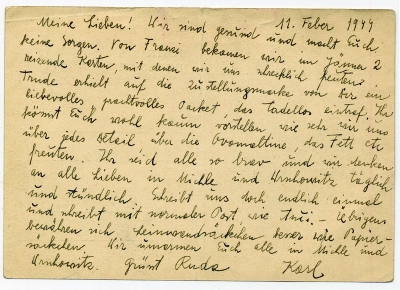 11. Feber 1944
Meine Lieben! Wir sind gesund und macht Euch
keine Sorgen. Von Franzi bekamen wir im Jänner 2
reizende Karten, mit denen wir uns schrecklich freuten.
Trude erhielt auf die Zustellungsmarke von Dir ein
liebevolles prachtvolles Packet das tadellos eintraf. Ihr
könnt Euch wohl kaum vorstellen wie sehr wir uns
über jedes Detail, über die Ovomaltine, das Fett etc
freuten. Ihr seid alle so brav und wir denken
an alle Lieben in Michle und Wrschowitz täglich
und stündlich. Schreibt uns doch endlich einmal
und schreibt mit normaler Post, wie - Übrigens
bewähren sich Leinwandsäckchen besser wie Papier-
säckchen. Wir umarmen Euch alle in Michle und
Wrschowitz. Grüsst Ruda Karl